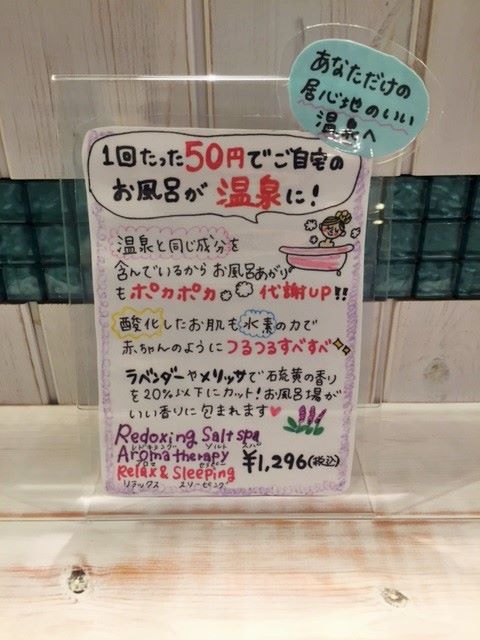 あなただけの
居心地のいい
温泉へ
1回たった50円でご自宅の
お風呂が 温泉に!
温泉と同じ成分を
含んでいるからお風呂あがり
もポカポカ 代謝UP!!
酸化したお肌も水素の力で
赤ちゃんのようにつるつるすべすべ
ラベンダーやメリッサで石硫黄の香り
を20%以下にカット!お風呂場が
いい香りに包まれます
Redoxing Salt spa
レドキシング ソルト スパ
Aromatherapy
アロマ セラピー
Relax & Sleeping
リラックス スリーピング
¥1,296(税込)